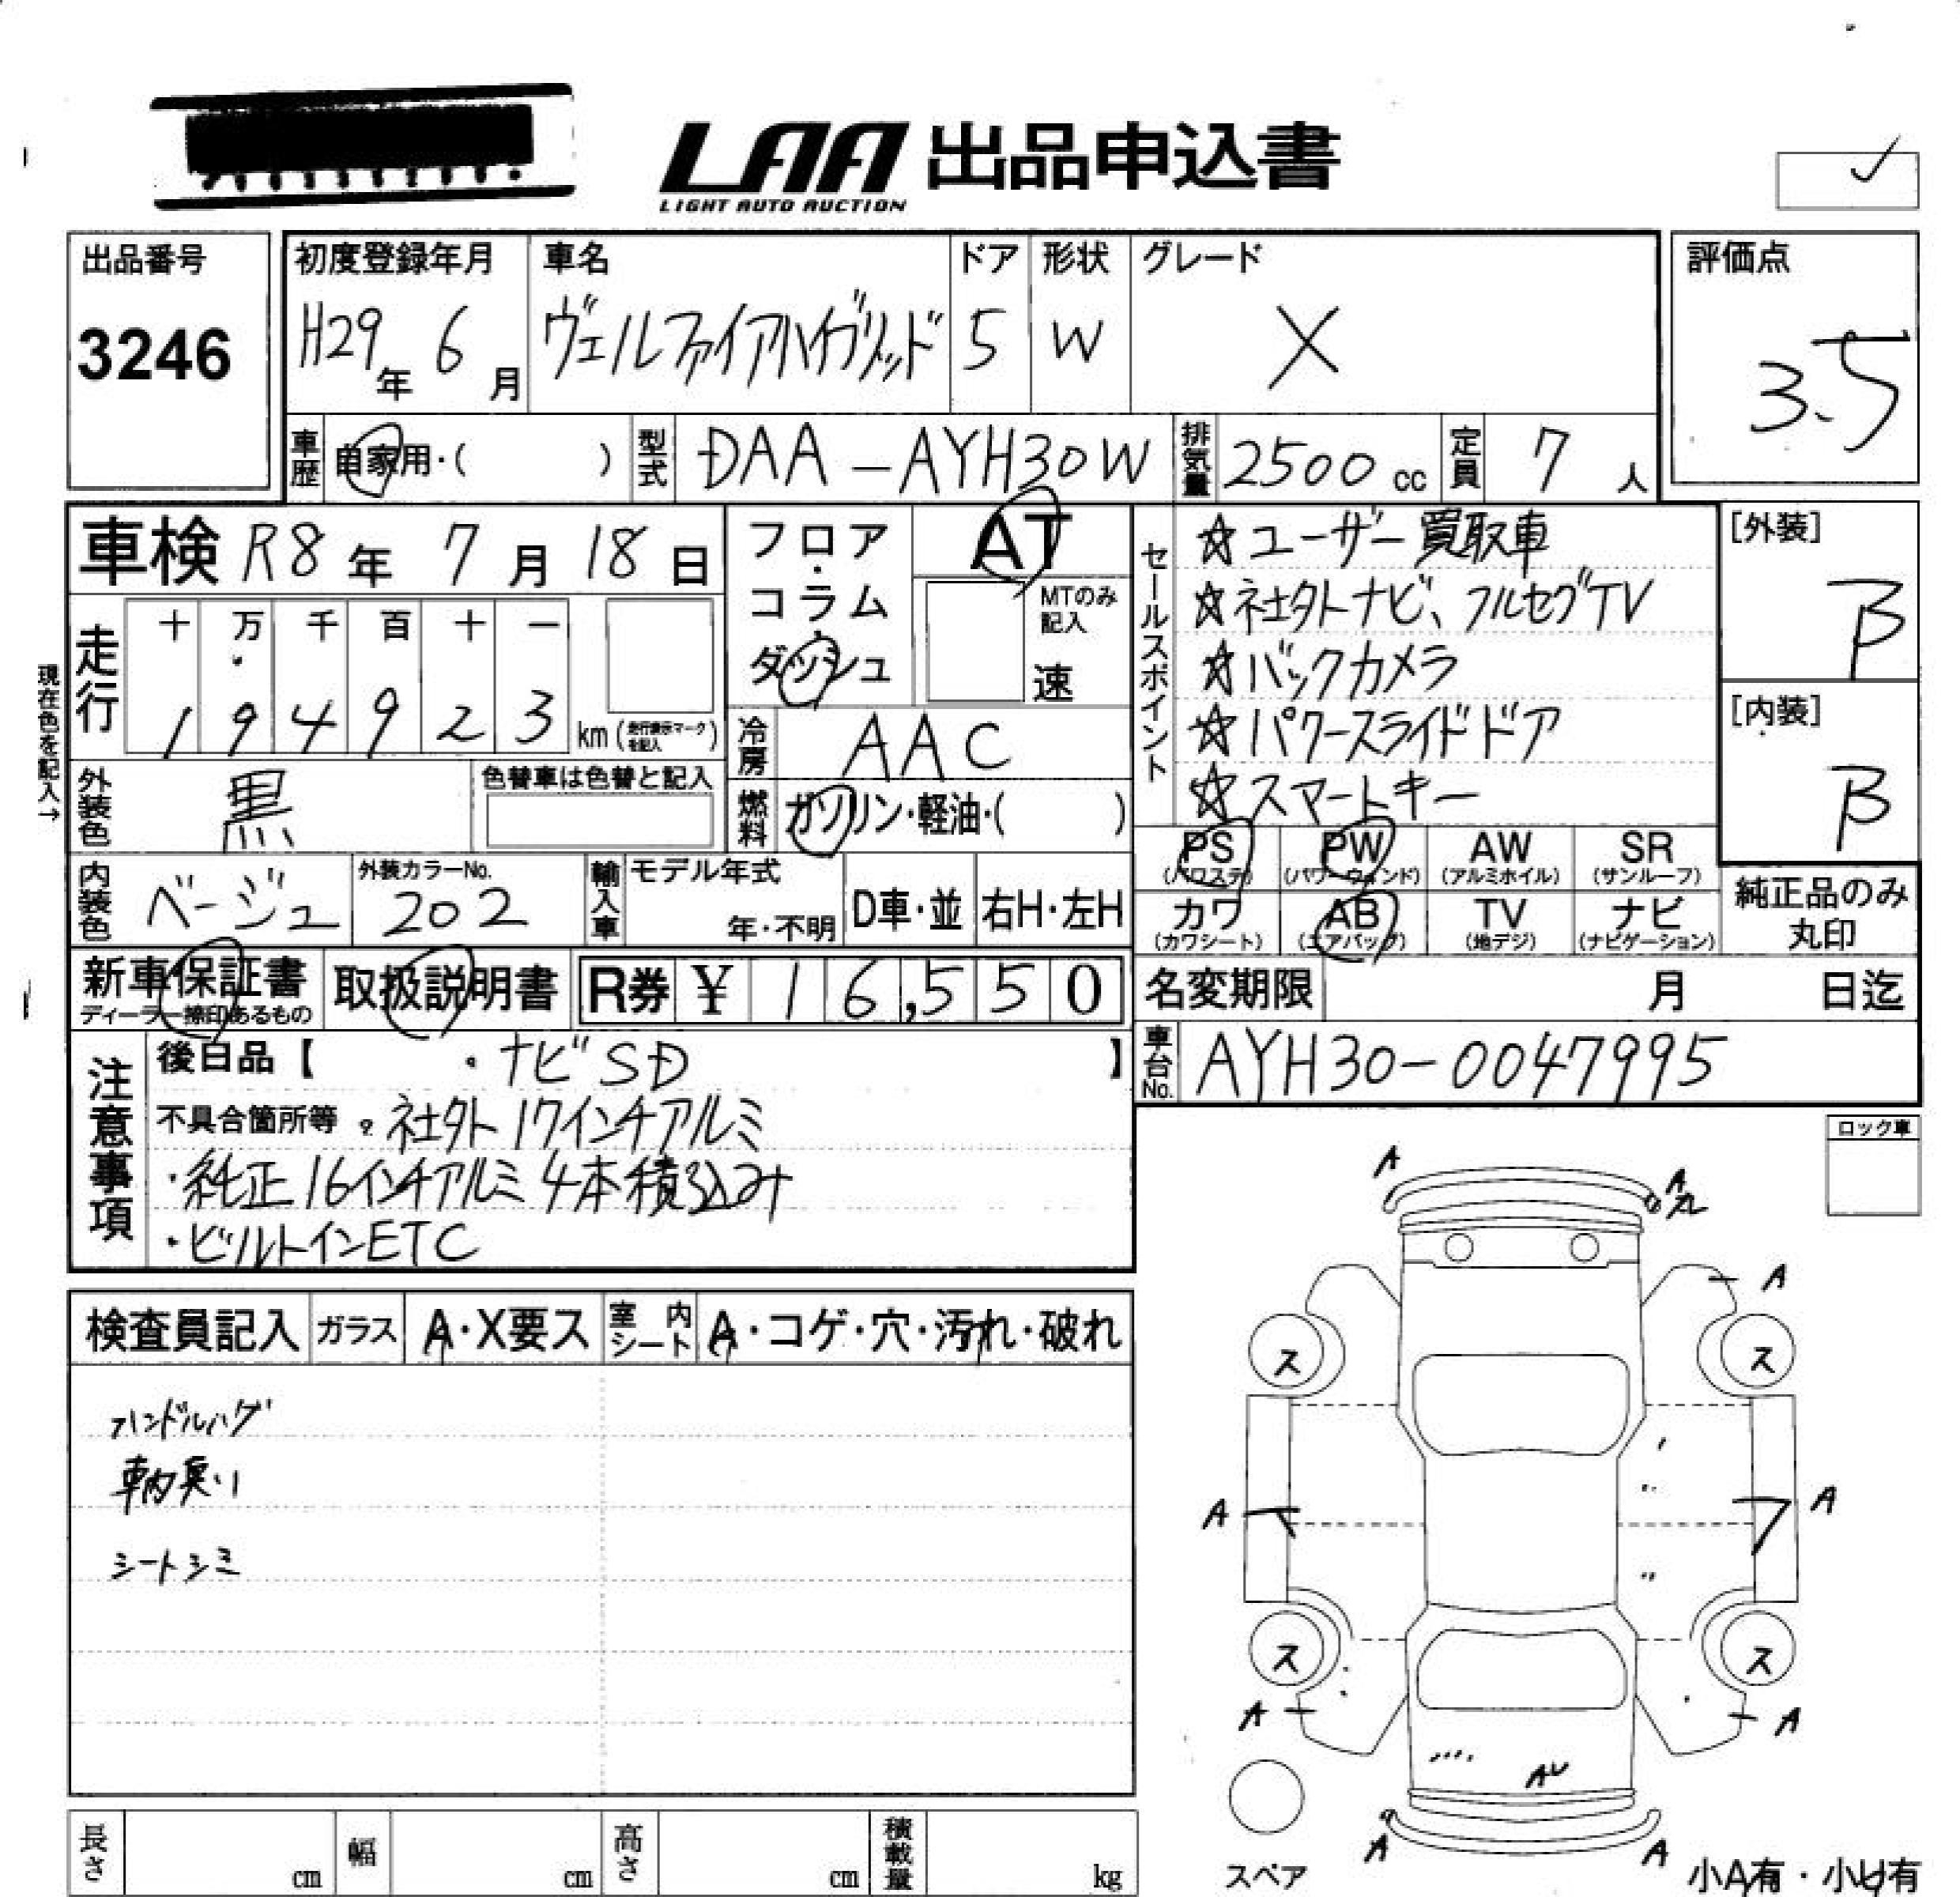 LAA 出品申込書
LIGHT AUTO AUCTION
出品番号
3246
初度登録年月
H29年 6月
車名
ヴェルファイアハイブリッド
ドア
5
形状
W
グレード
X
評価点
3.5
車歴 自家用・( )
型式 DAA-AYH30W
排気量 2500 cc
定員 7 人
車検 R8年 7月 18日
走行
十 万 千 百 十 一
1 9 4 9 2 3 km (走行表示マークを記入)
現在色を記入→
外装色 黒
色替車は色替と記入
内装色 ベージュ
外装カラーNo.
202
フロア・コラム・ダッシュ
AT
MTのみ記入
速
冷房 AAC
燃料 ガソリン・軽油・( )
輸入車
モデル年式
年・不明
D車・並 右H・左H
セールスポイント
☆ユーザー買取車
☆社外ナビ、フルセグTV
☆バックカメラ
☆パワースライドドア
☆スマートキー
[外装]
B
[内装]
B
PS (パワステ)
PW (パワーウィンド)
AW (アルミホイル)
SR (サンルーフ)
カワ (カワシート)
AB (エアバッグ)
TV (地デジ)
ナビ (ナビゲーション)
純正品のみ丸印
新車保証書
ディーラー捺印あるもの
取扱説明書
R券 ¥ 16,550
名変期限 月 日迄
車台No. AYH30-0047995
注意事項
後日品【 ・ナビSD 】
不具合箇所等 。社外17インチアルミ
・純正16インチアルミ4本積込み
・ビルトインETC
ロック車
検査員記入 ガラス A・X要ス 室内シート A・コゲ・穴・汚れ・破れ
ハンドルハゲ
車内臭い
シートシミ
A
A
A
ス ス
A A
ス ス
A A
AU
A A
スペア
小A有・小U有
長さ cm
幅 cm
高さ cm
積載量 kg